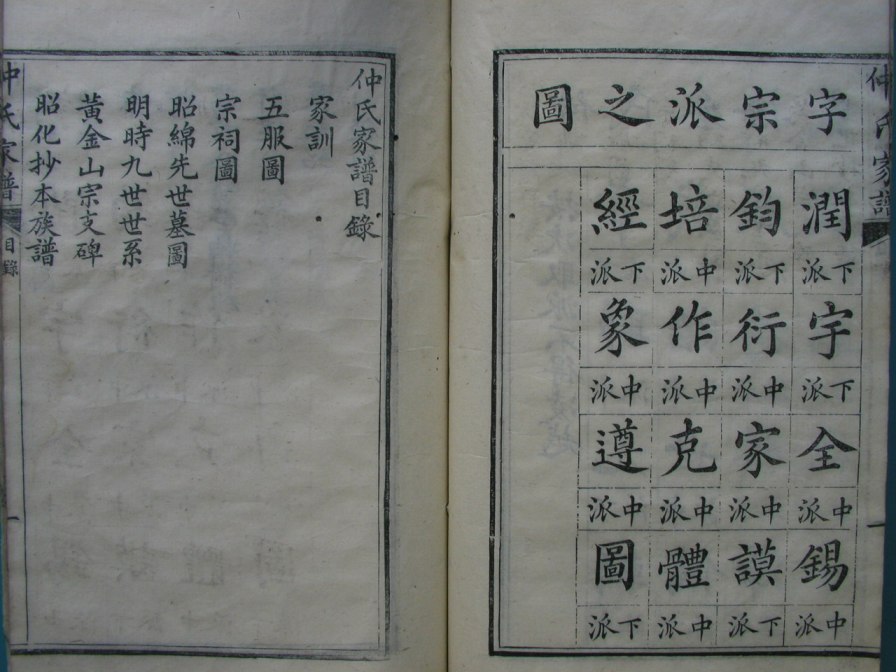 仲氏家譜
一
字宗派之圖
潤
下派
宇
下派
全
中派
錫
中派
鈞
下派
衍
中派
家
中派
謨
下派
培
中派
作
中派
克
中派
體
中派
經
下派
象
中派
遵
中派
圖
下派
仲氏家譜目錄
家訓
五服圖
宗祠圖
昭綿先世墓圖
明時九世世系
黃金山宗支碑
昭化抄本族譜
仲氏家譜
目錄
一